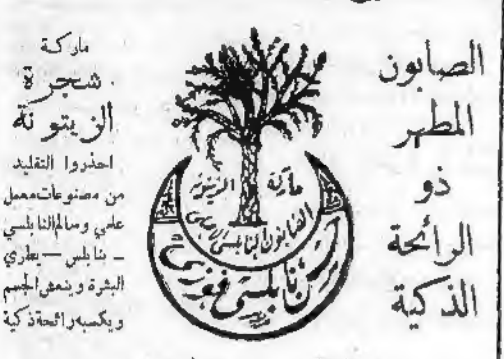 الصابون
المطهر
ذو
الرائحة
الذكية
ماركة الزيتونة
الصابون النابلسي
نابلسي فوزي
ماركة
شجرة
الزيتونة
احذروا التقليد
من مصنوعات معمل
علمي وسالم النابلسي
ـ بنابلس ـ يطري
البشرة وينعش الجسم
ويكسبه رائحة ذكية